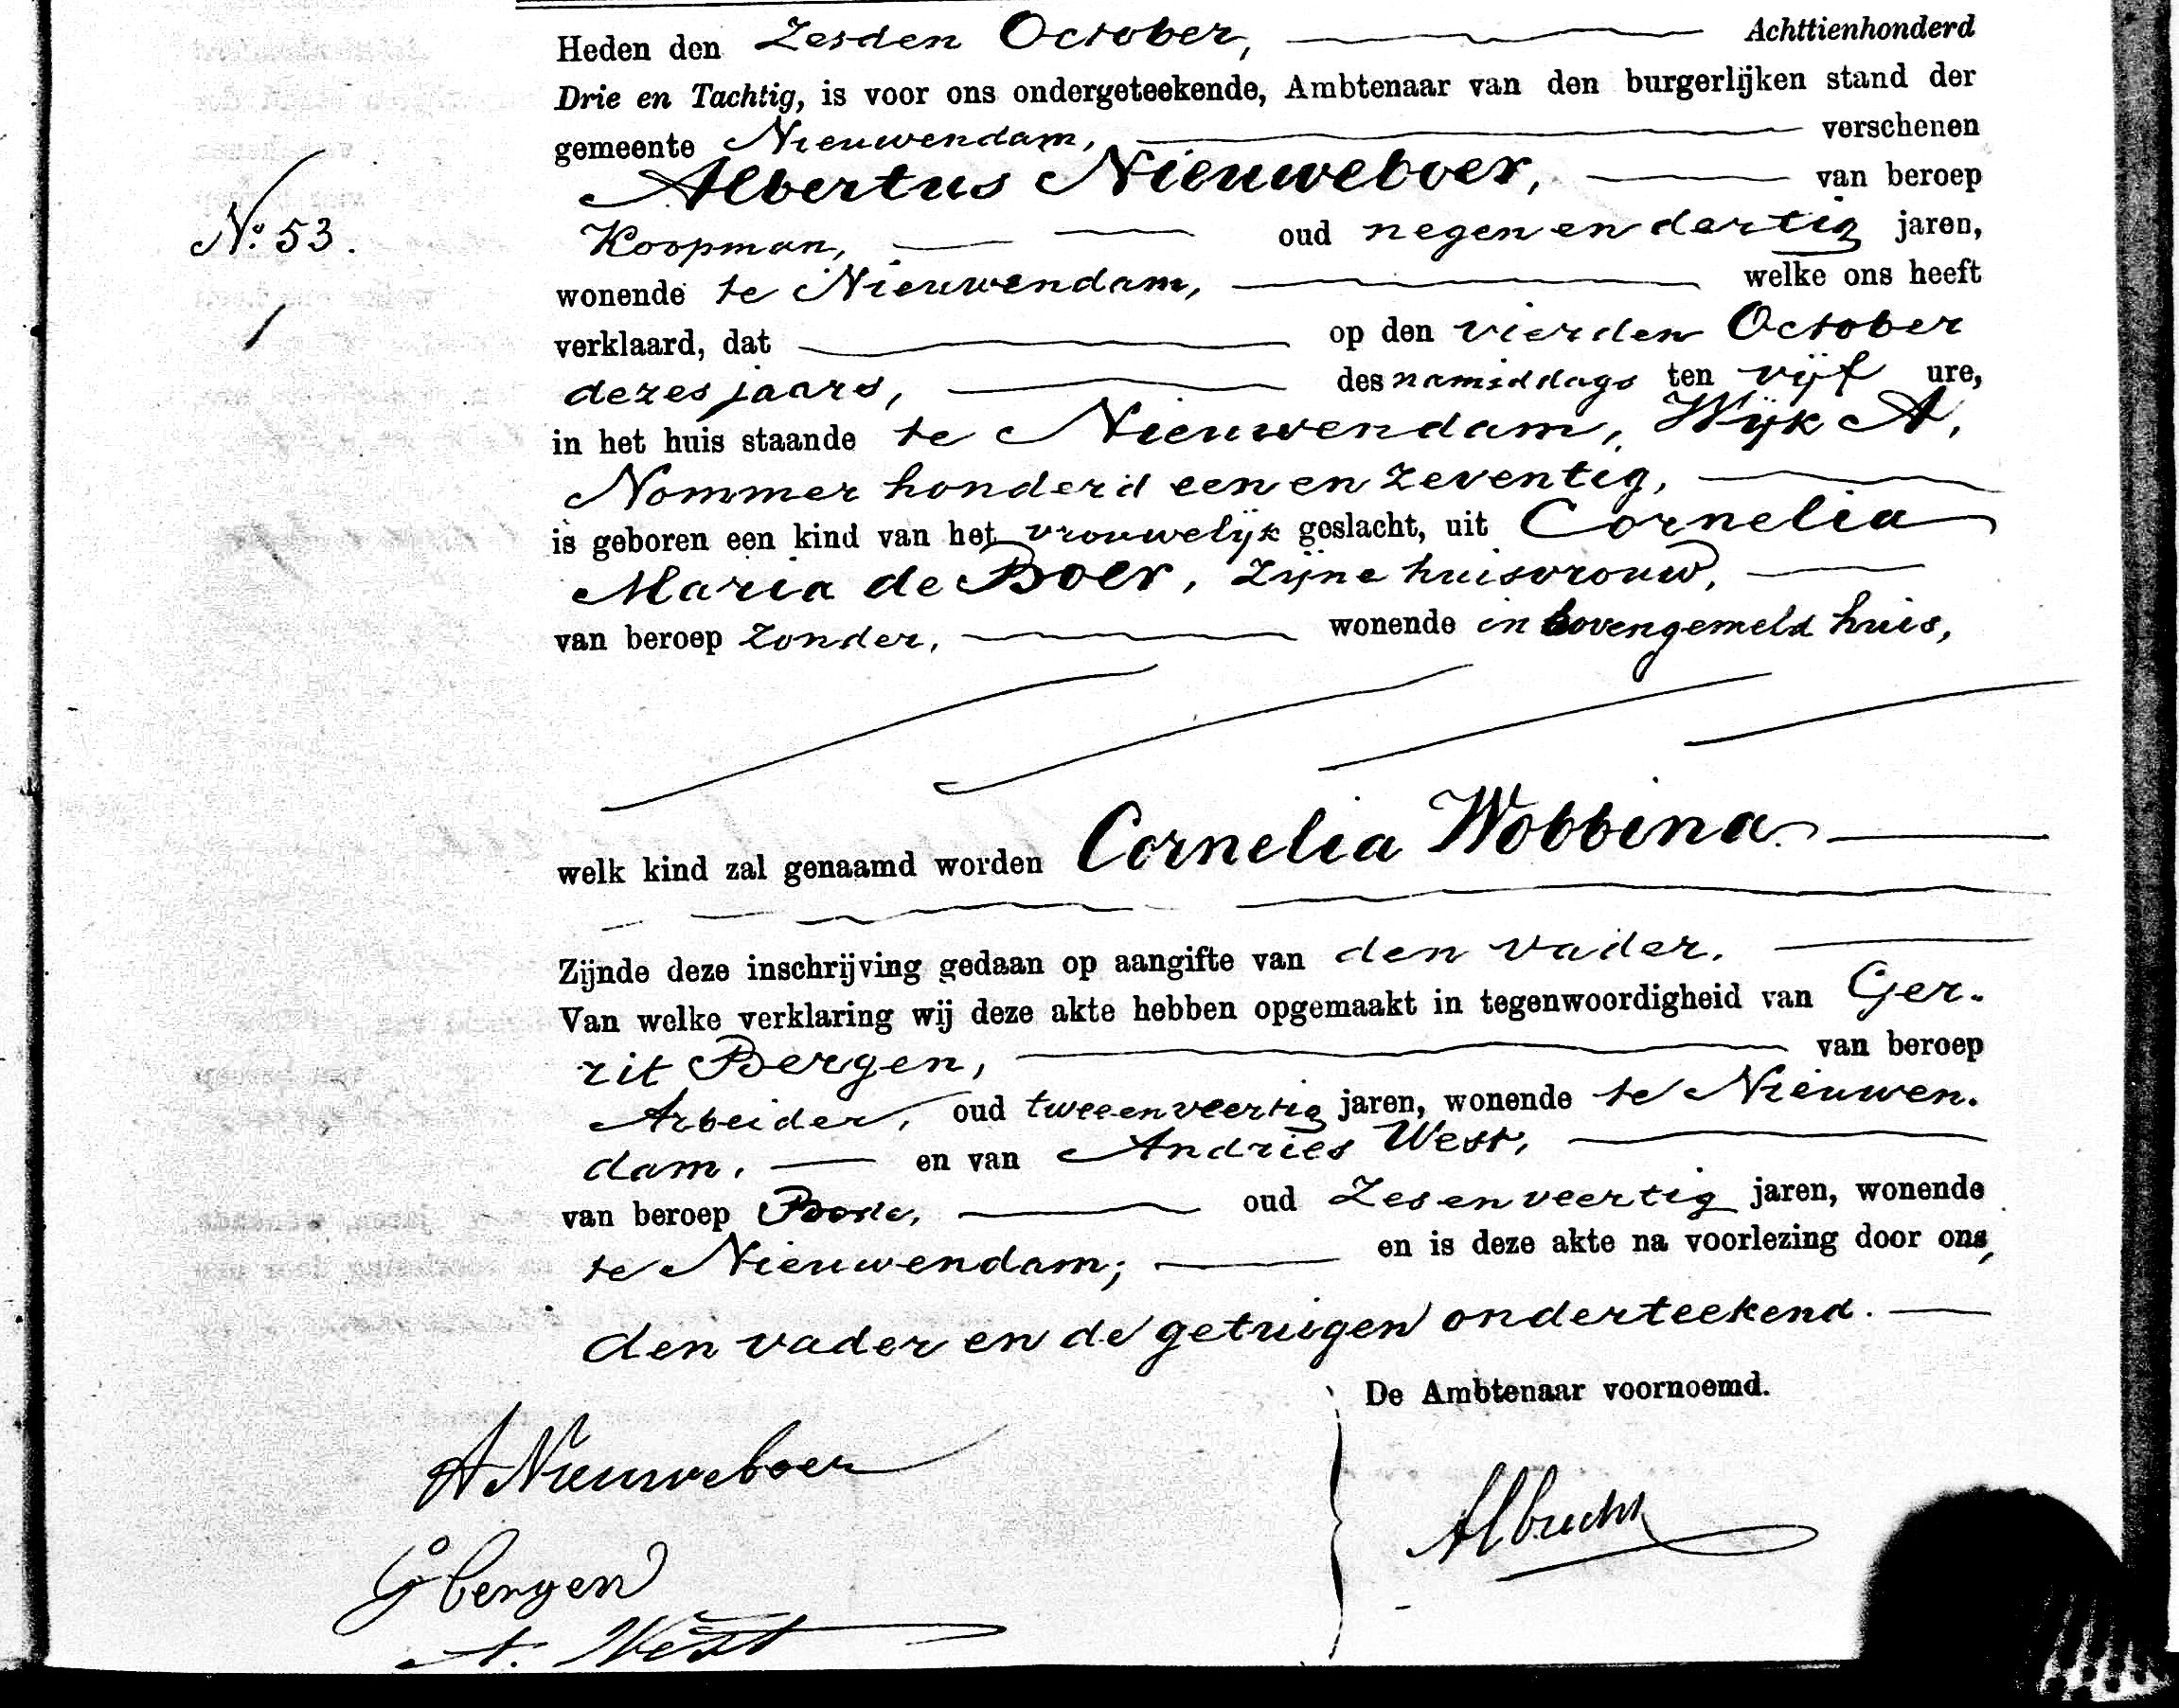 Heden den Zesden October, Achttienhonderd
Drie en Tachtig, is voor ons ondergeteekende, Ambtenaar van den burgerlijken stand der
gemeente Nieuwendam, verschenen
Albertus Nieuweboer, van beroep
No. 53.
Koopman, oud negen en dertig jaren,
wonende te Nieuwendam, welke ons heeft
verklaard, dat op den vierden October
dezes jaars, des namiddags ten vijf ure,
in het huis staande te Nieuwendam, Wijk A,
Nommer honderd een en zeventig,
is geboren een kind van het vrouwelijk geslacht, uit Cornelia
Maria de Boer, zijne huisvrouw,
van beroep zonder, wonende in bovengemeld huis,
welk kind zal genaamd worden Cornelia Wobbina.
Zijnde deze inschrijving gedaan op aangifte van den vader.
Van welke verklaring wij deze akte hebben opgemaakt in tegenwoordigheid van Ger-
rit Bergen, van beroep
Arbeider, oud twee en veertig jaren, wonende te Nieuwen-
dam, en van Andries West,
van beroep Bode, oud Zes en veertig jaren, wonende
te Nieuwendam; en is deze akte na voorlezing door ons,
den vader en de getuigen onderteekend.
De Ambtenaar voornoemd.
A Nieuweboer
Albrecht
G bergen
A. West